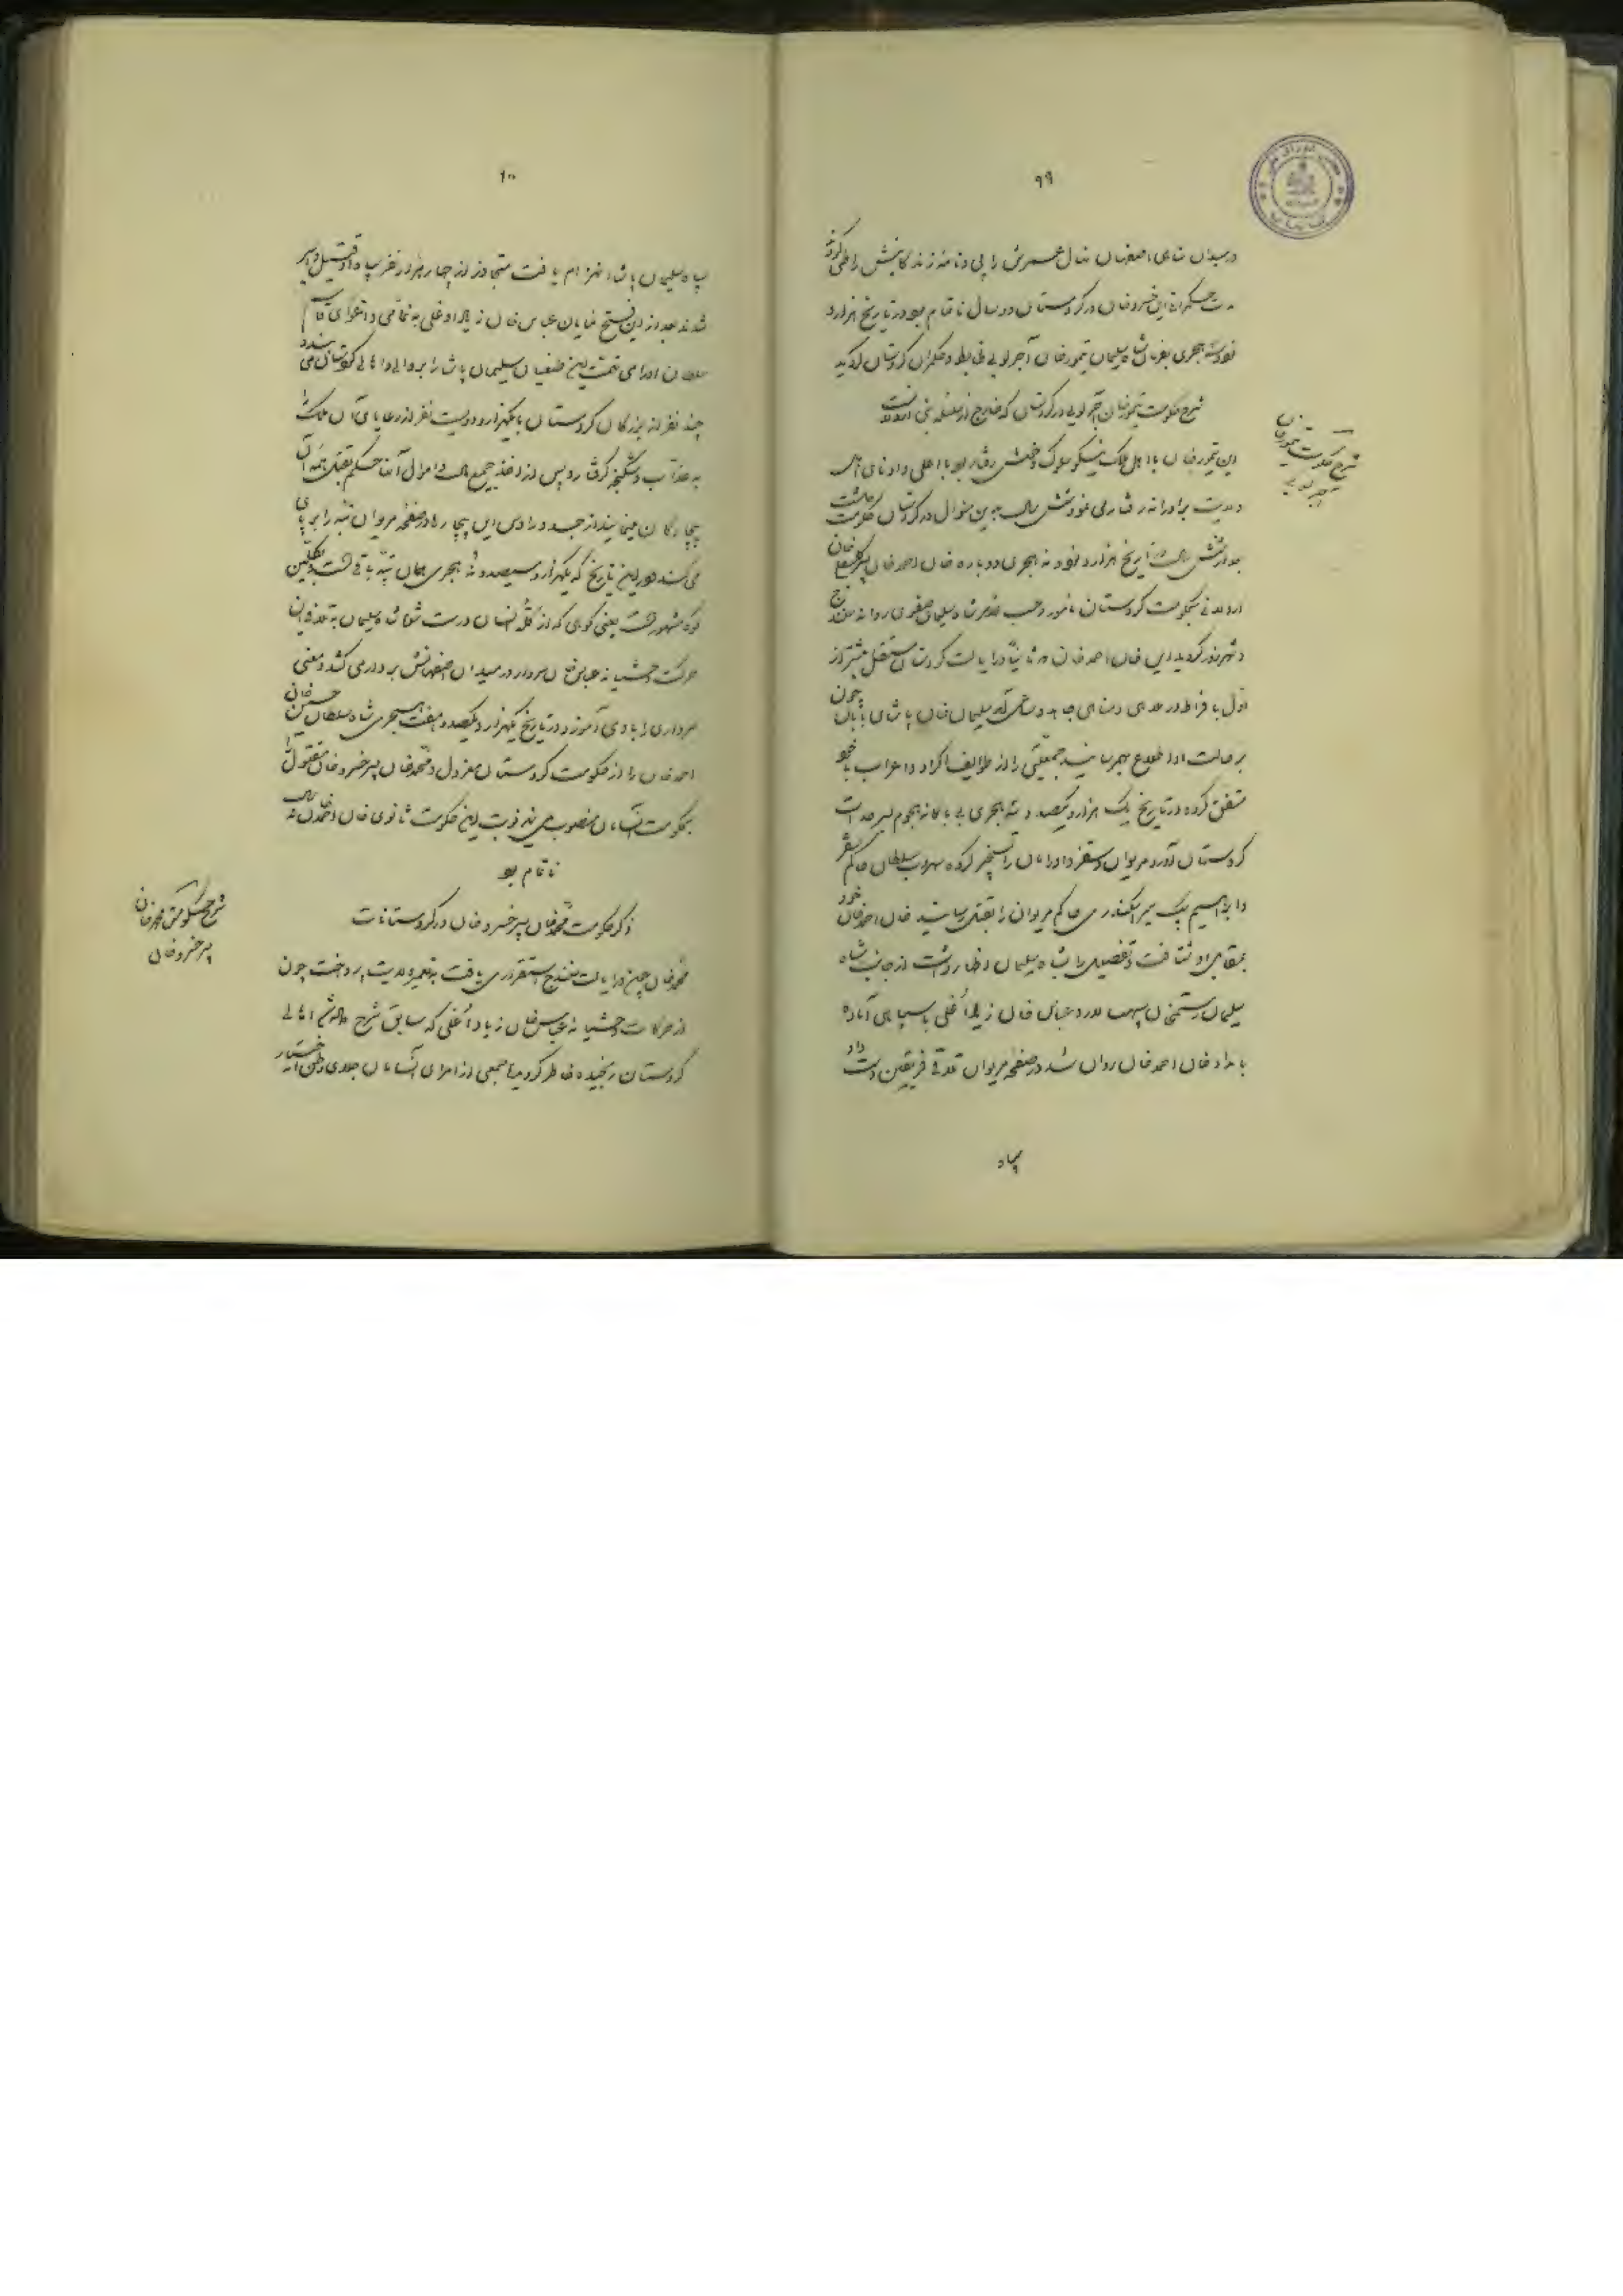 ۹۹
در میدان شاهی اصفهان نهال عمرش را پی و نامه زندگانیش را طی کردند
مدت حکمرانی این خسروخان در کردستان دو سال ناتمام بود در تاریخ هزار و
نود و سه هجری بفرمان شاه سلیمان تیمورخان آجرلویی ضابط و حکمران کردستان گردید
شرح حکومت تیمورخان آجرلویی در کردستان که خارج از سلسله بنی اردلانست
شرح حکومت تیمورخان
آجرلویی
این تیمورخان با اهل ملک نیکو سلوک و خوش رفتار بود با اعلی و ادنای اهالی
ولایت برادرانه رفتار می نمود شش سال بدین منوال در کردستان حکومت داشت
بعد از شش سال در تاریخ هزار و نود و نه هجری دوباره خان احمدخان پسر کلبعلی خان
اردلانی بحکومت کردستان مامور و حسب الامر شاه سلیمان صفوی روانه سنندج
و شهرزور گردید این خان احمدخان ثانیاً در ایالت کردستان مستقل بیشتر از
اول با فراط در هدای رضای جاهد و ساعی آمد سلیمان خان پاشای بابان چون
بر حالت او اطلاع بهم رسانید جمعیتی را از طوایف اکراد و اعراب با خود
متفق کرده در تاریخ یک هزار و یکصد و سه هجری بی باکانه هجوم بسرحدات
کردستان آورد مریوان و سقز و اورامان را تسخیر کرده سهراب سلطان حاکم سقز
و ابراهیم بیک میر اسکندر حاکم مریوان را بقتل رسانید خان احمدخان خود
بمقابل او شتافت و تفصیل را بشاه سلیمان اظهار داشت از جانب شاه
سلیمان رستم خان سپهسالار و عباس خان زیاد اغلی با سپاهی آماده
بامداد خان احمدخان روان شد در صفحه مریوان تلاقی فریقین دست داد
سپاه
۱۰۰
سپاه سلیمان پاشا انهزام یافت متجاوز از چهار هزار نفر سپاه او قتیل و اسیر
شدند بعد از این فتح نمایان عباس خان زیاد اوغلی به نمامی و اغوای قاسم
سلطان اورامی تهمت طغیان سلیمان پاشا را بر والی و اهالی کردستان می بندد
چند نفر از بزرگان کردستان با یکهزار و دویست نفر از رعایای آن ملک را
به عذاب و شکنجه گرفتار و پس از اخذ جمیع مال و اموال آنها حکم بقتل همه آن
بیچارگان مینماید از جسد و رؤس این بیچارها در صفحه مریوان تپه را بر پای
می کنند در این تاریخ که یکهزار و سیصد و نه هجری همان تپه باقی است
مشهور است یعنی کوهی که از کله انسان درست شده شاه سلیمان به تلافی این
حرکت وحشیانه عباس خان سردار در میدان اصفهانش بر دار می کشد و معنی
سرداری را با وی آموزد در تاریخ یکهزار و یکصد و هفت هجری شاه سلطان حسین خان
احمدخان را از حکومت کردستان معزول و محمدخان پسر خسروخان مقتول را
بحکومت آنسامان منصوب می نماید نوبت این حکومت ثانوی خان احمدخان سال
ناتمام بود
ذکر حکومت محمدخان پسر خسروخان در کردستانات
شرح حکومت محمدخان
پسر خسروخان
محمدخان چون در ایالت سنندج استقراری یافت بتعمیر ولایت پرداخت چون
از حرکات وحشیانه عباس خان زیاد اُغلی که سابق شرح دادیم اهالی
کردستان رنجیده خاطر گردیده جمعی از امرای آنسامان جلای وطن اختیار